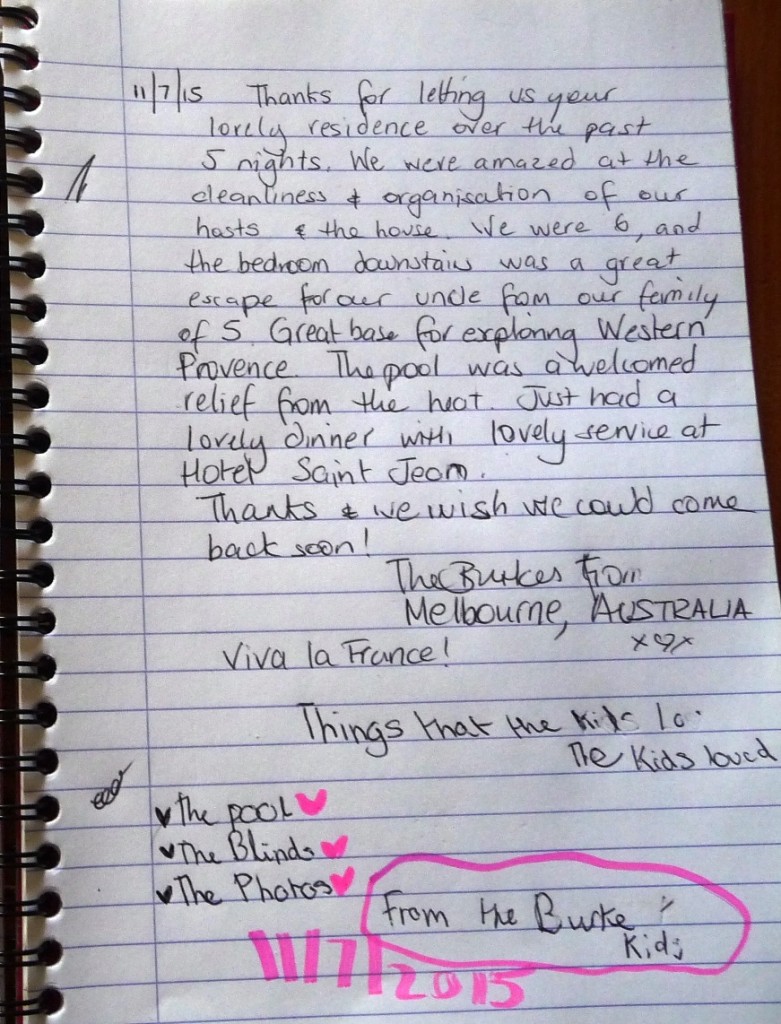 11/7/15 Thanks for letting us your
lovely residence over the past
5 nights. We were amazed at the
cleanliness & organisation of our
hosts & the house. We were 6, and
the bedroom downstairs was a great
escape for our uncle from our family
of 5. Great base for exploring Western
Provence. The pool was a welcomed
relief from the heat. Just had a
lovely dinner with lovely service at
Hotel Saint Jean.
Thanks & we wish we could come
back soon!
The Burkes from
Melbourne, AUSTRALIA
x♡x
Viva la France!
Things that the kids lo
The Kids loved
♥The pool♥
♥The Blinds♥
♥The Photos♥
From the Burke
Kids
11/7/2015